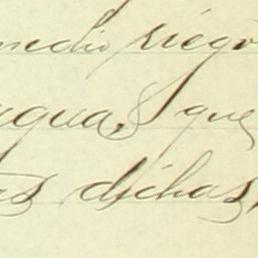 medio riego
agua, y que
as dichas,